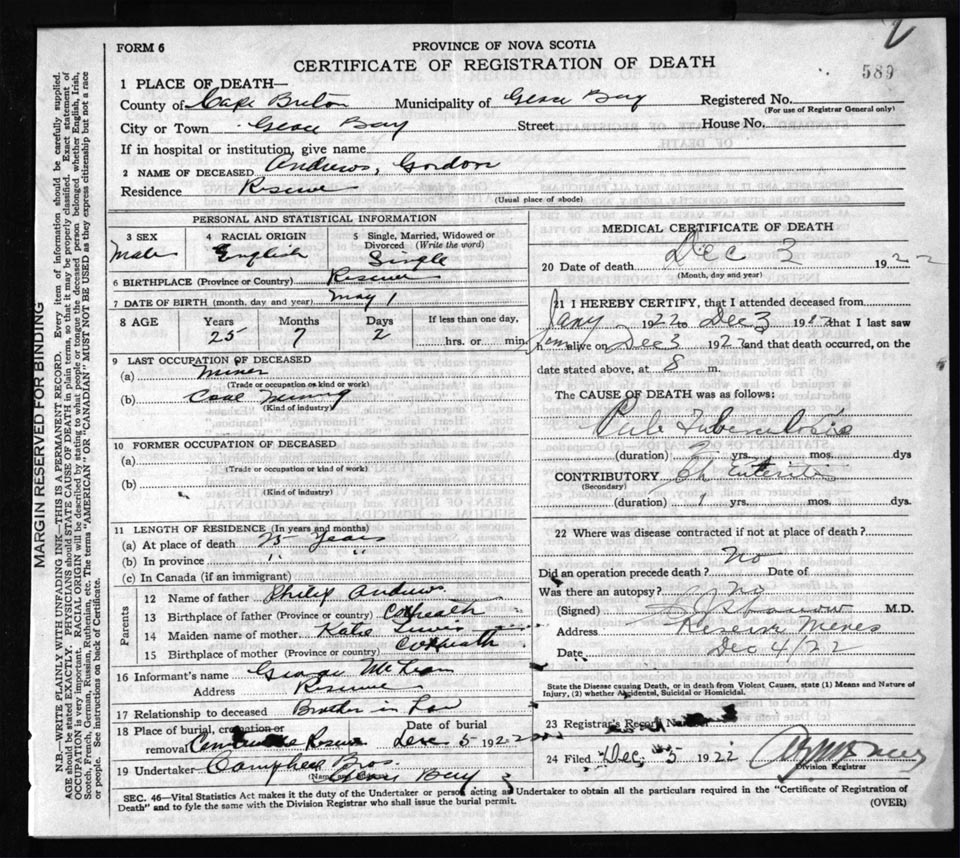 FORM 6
PROVINCE OF NOVA SCOTIA
CERTIFICATE OF REGISTRATION OF DEATH
589
1 PLACE OF DEATH—
County of Cape Breton Municipality of Glace Bay Registered No.
(For use of Registrar General only)
City or Town Glace Bay Street House No.
If in hospital or institution, give name
2 NAME OF DECEASED Andrews, Gordon
Residence Reserve
(Usual place of abode)
PERSONAL AND STATISTICAL INFORMATION
3 SEX Male
4 RACIAL ORIGIN English
5 Single, Married, Widowed or Divorced (Write the word) Single
6 BIRTHPLACE (Province or Country) Reserve
7 DATE OF BIRTH (month, day and year) May 1
8 AGE Years 25 Months 7 Days 2 If less than one day, hrs. or min.
9 LAST OCCUPATION OF DECEASED
(a) Miner
(Trade or occupation or kind of work)
(b) Coal Mining
(Kind of industry)
10 FORMER OCCUPATION OF DECEASED
(a)
(Trade or occupation or kind of work)
(b)
(Kind of industry)
11 LENGTH OF RESIDENCE (In years and months)
(a) At place of death 25 Years
(b) In province " "
(c) In Canada (if an immigrant)
Parents
12 Name of father Philip Andrews
13 Birthplace of father (Province or country) Coxheath
14 Maiden name of mother Katie
15 Birthplace of mother (Province or country) Coxheath
16 Informant's name George McLean
Address Reserve
17 Relationship to deceased Brother in Law
18 Place of burial, cremation or removal Reserve Date of burial Dec 5 1922
19 Undertaker Campbell Bros.
(Name and address) Glace Bay
MEDICAL CERTIFICATE OF DEATH
20 Date of death Dec 3 1922
(Month, day and year)
21 I HEREBY CERTIFY, that I attended deceased from
Jany 1922 to Dec 3 1922 that I last saw
him alive on Dec 3 1922 and that death occurred, on the
date stated above, at 8 m.
The CAUSE OF DEATH was as follows:
Pul. Tuberculosis
(duration) 2 yrs. mos. dys
CONTRIBUTORY Ch Enteritis
(Secondary)
(duration) 1 yrs. mos. dys.
22 Where was disease contracted if not at place of death?
Did an operation precede death? No Date of
Was there an autopsy? No
(Signed) M.D.
Address Reserve Mines
Date Dec 4/22
State the Disease causing Death, or in death from Violent Causes, state (1) Means and Nature of Injury, (2) whether Accidental, Suicidal or Homicidal.
23 Registrar's Record Number
24 Filed Dec, 5 1922
Division Registrar
SEC. 46—Vital Statistics Act makes it the duty of the Undertaker or person acting as Undertaker to obtain all the particulars required in the "Certificate of Registration of
Death" and to fyle the same with the Division Registrar who shall issue the burial permit.
(OVER)
MARGIN RESERVED FOR BINDING
N.B.—WRITE PLAINLY WITH UNFADING INK—THIS IS A PERMANENT RECORD. Every item of information should be carefully supplied.
AGE should be stated EXACTLY. PHYSICIANS should STATE CAUSE OF DEATH in plain terms, so that it may be properly classified. Exact statement of
OCCUPATION is very important. RACIAL ORIGIN will be described by stating to what people or tongue the deceased person belonged whether English, Irish,
Scotch, French, German, Russian, Ruthenian, etc. The terms "AMERICAN" OR "CANADIAN" MUST NOT BE USED as they express citizenship but not a race
or people. See instructions on back of Certificate.